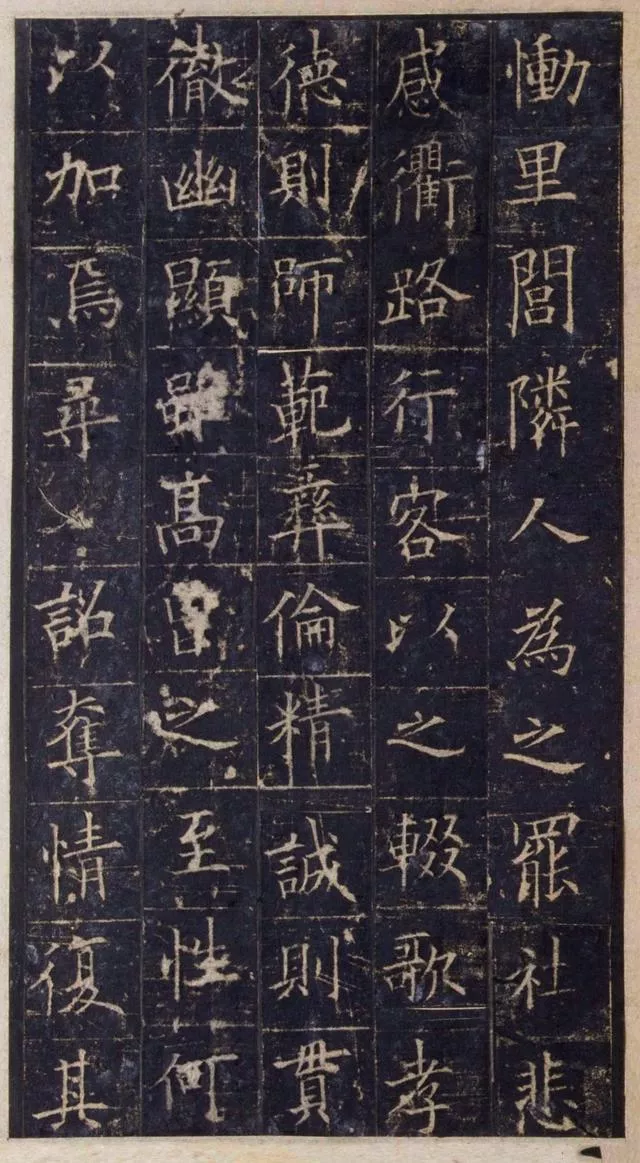 慟里閭隣人為之罷社悲
感衢路行客以之輟歌孝
德則師範彝倫精誠則貫
徹幽顯雖高曽之至性何
以加焉尋又詔奪情復其